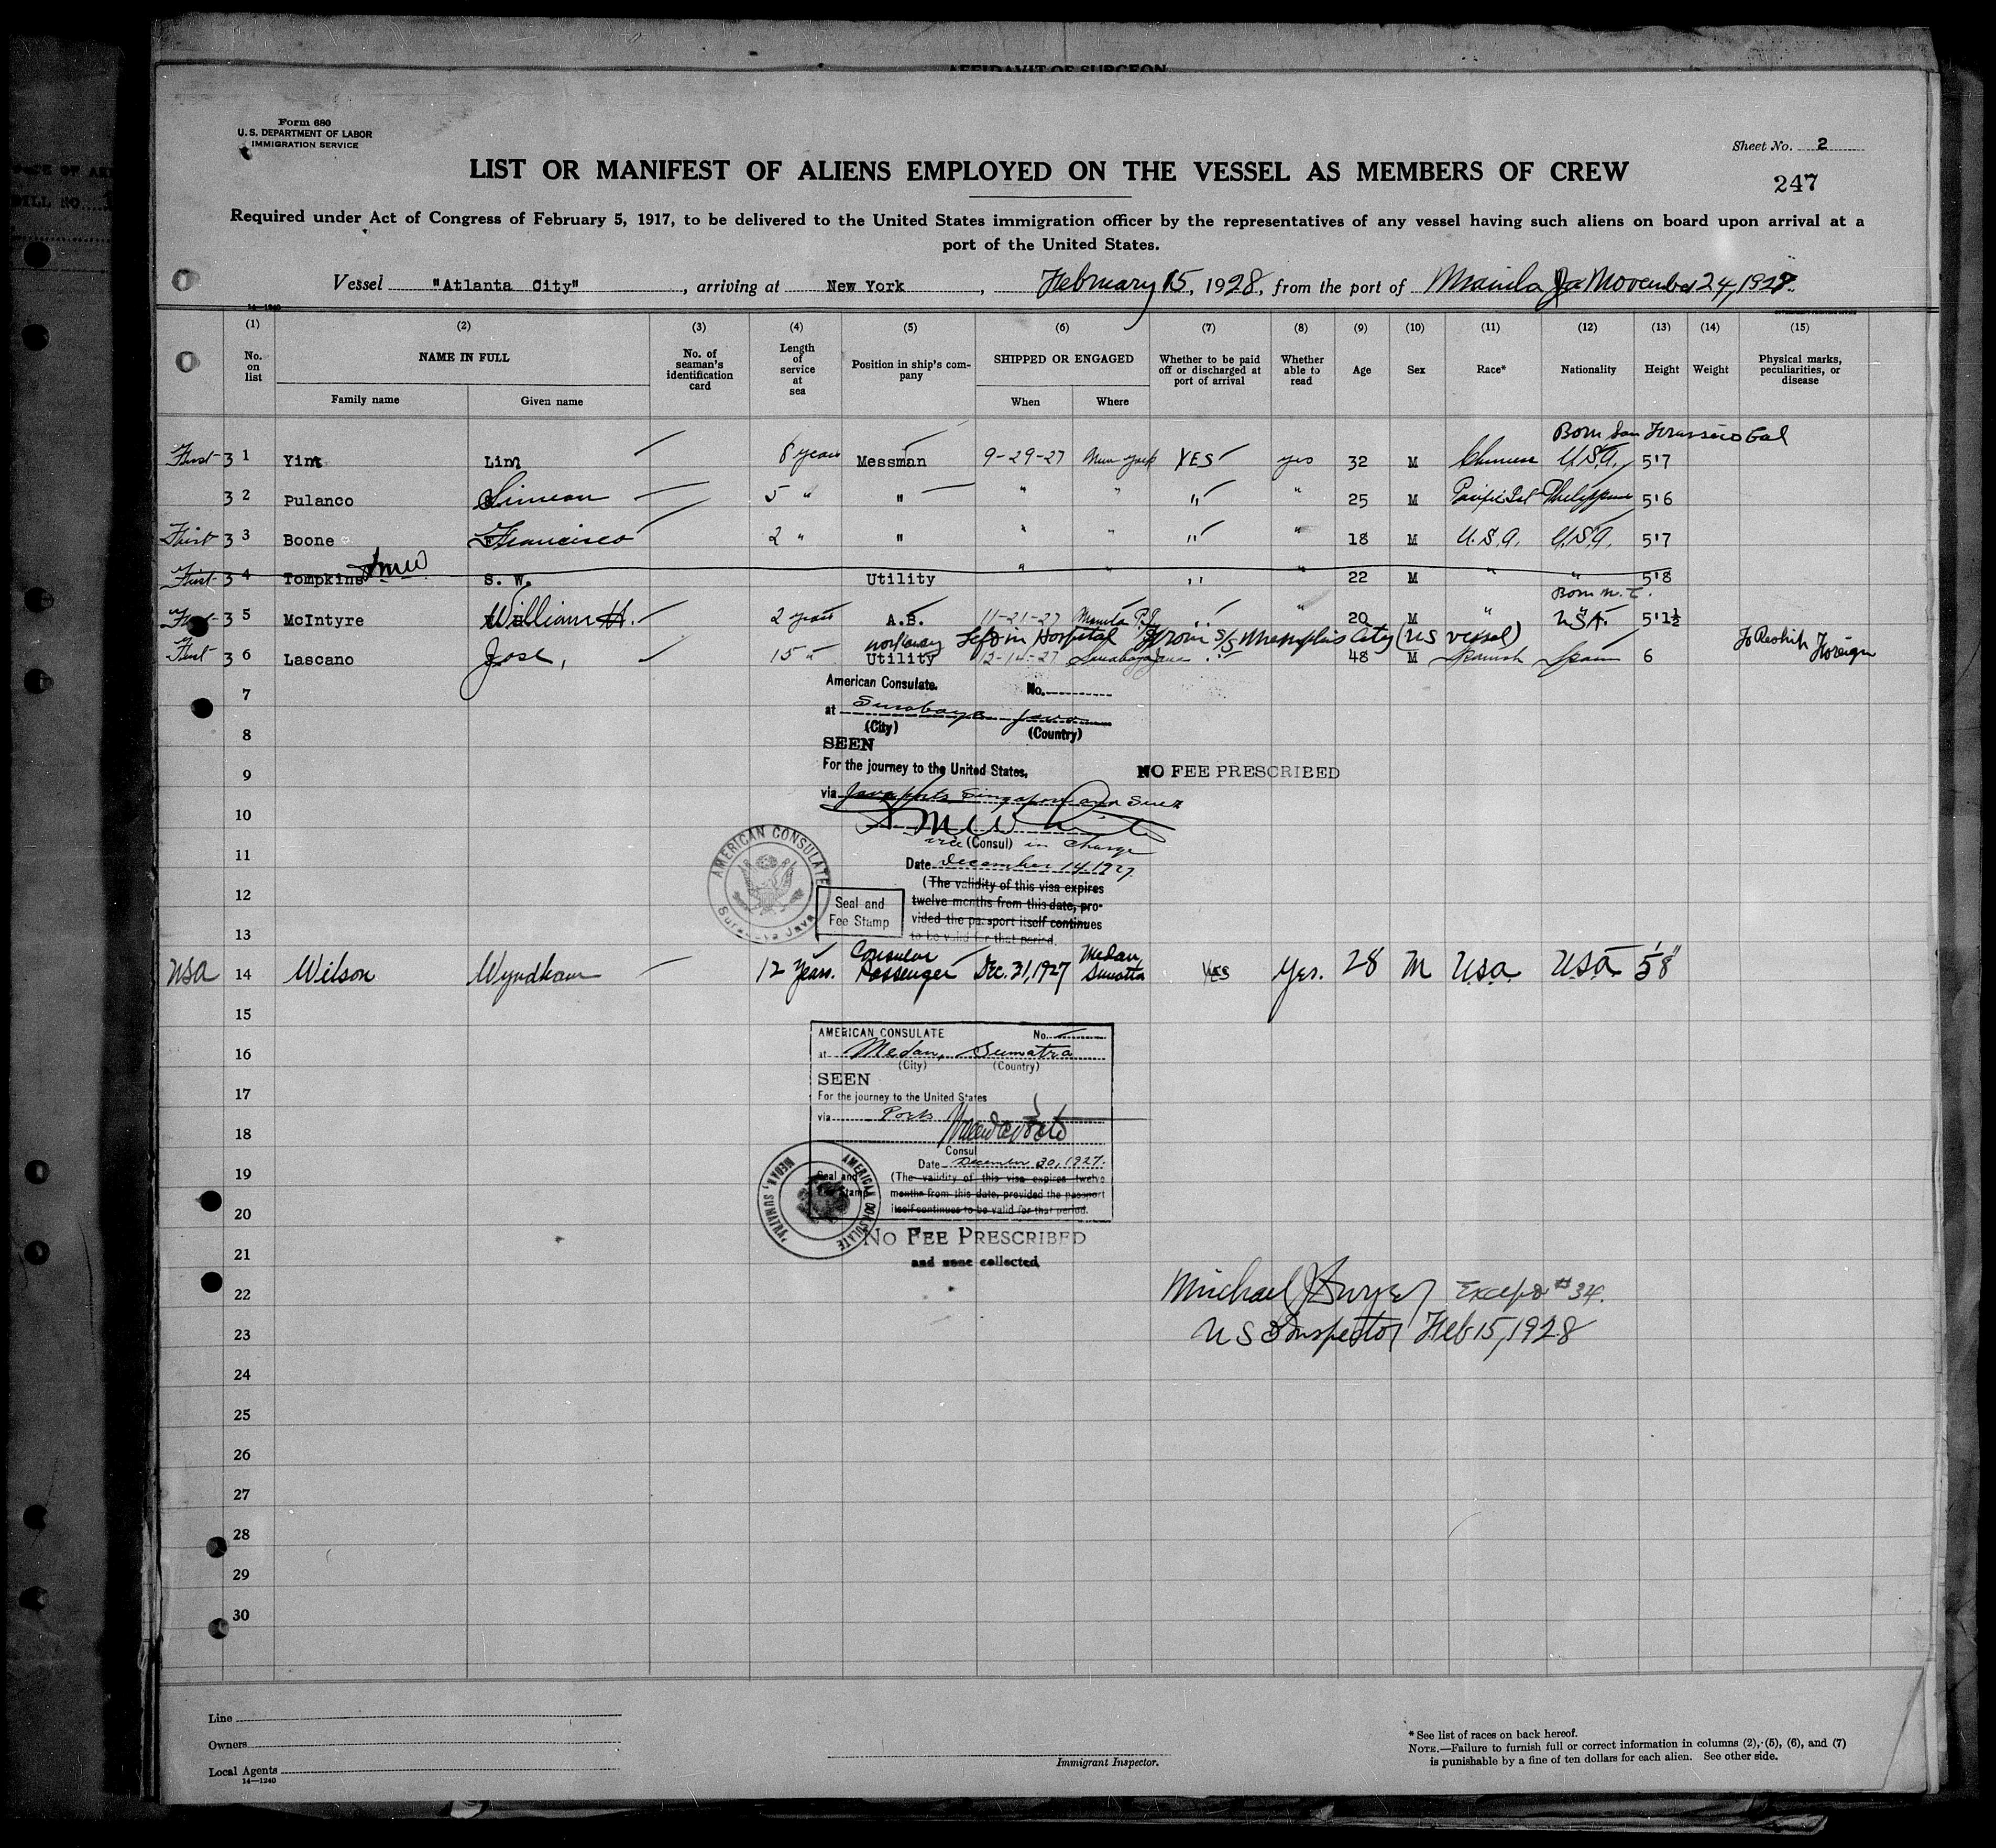 AFFIDAVIT OF SURGEON
Form 680
U. S. DEPARTMENT OF LABOR
IMMIGRATION SERVICE
Sheet No. 2
LIST OR MANIFEST OF ALIENS EMPLOYED ON THE VESSEL AS MEMBERS OF CREW
247
Required under Act of Congress of February 5, 1917, to be delivered to the United States immigration officer by the representatives of any vessel having such aliens on board upon arrival at a
port of the United States.
Vessel "Atlanta City", arriving at New York, February 15, 1928, from the port of Manila November 24, 1927
14-1240
(1) (2) (3) (4) (5) (6) (7) (8) (9) (10) (11) (12) (13) (14) (15)
No. on list
NAME IN FULL
Family name Given name
No. of seaman's identification card
Length of service at sea
Position in ship's company
SHIPPED OR ENGAGED
When Where
Whether to be paid off or discharged at port of arrival
Whether able to read
Age Sex Race* Nationality Height Weight
Physical marks, peculiarities, or disease
Born San Francisco Cal
First 3 1 Yim Lim 8 years Messman 9-29-27 New York YES yes 32 M Chinese U.S.A. 5'7
3 2 Pulanco Simeon 5 " " " " " " 25 M Pacific Isl Philippine 5'6
First 3 3 Boone Francisco 2 " " " " " " 18 M U.S.A. U.S.A. 5'7
First 3 4 Tompkins S. W. Utility " " " " 22 M " " 5'8
Born N. C.
First 3 5 McIntyre William H. 2 years A.B. 11-21-27 Manila P.I. " " 20 M " USA. 5'1½
workaway Left in Hospital From S/S Memphis City (US vessel)
First 3 6 Lascano Jose, 15 " Utility 12-14-27 Surabaya Java " 48 M Spanish Spain 6 To Reship Foreign
7
American Consulate. No.
at Surabaya Java
8
(City) (Country)
SEEN
9
For the journey to the United States,
NO FEE PRESCRIBED
via Java ports Singapore and Suez
10
vice (Consul) in charge
11
Date December 14, 1927
AMERICAN CONSULATE
Surabaya Java
12
(The validity of this visa expires
twelve months from this date, pro-
vided the passport itself continues
to be valid for that period.
Seal and
Fee Stamp
13
USA 14 Wilson Wyndham 12 Years. Consular Passenger Dec. 31, 1927 Medan, Sumatra YES Yes. 28 M USA. USA 5'8"
15
AMERICAN CONSULATE No.
16
at Medan, Sumatra
(City) (Country)
SEEN
17
For the journey to the United States
via Ports
18
Consul
Date December 30, 1927.
19
(The validity of this visa expires twelve
months from this date, provided the passport
itself continues to be valid for that period.
Seal and
Fee Stamp
AMERICAN CONSULATE
MEDAN, SUMATRA
20
NO FEE PRESCRIBED
21
and none collected
22
Michael J Dwyer Except #34.
23
US Inspector Feb 15, 1928
24
25
26
27
28
29
30
Line
Owners
Local Agents
14-1240
Immigrant Inspector.
* See list of races on back hereof.
NOTE.—Failure to furnish full or correct information in columns (2), (5), (6), and (7)
is punishable by a fine of ten dollars for each alien. See other side.